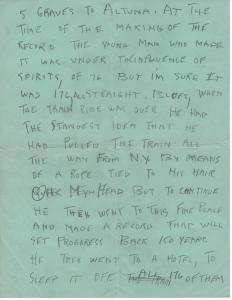 5 GRAVES TO ALTUNA. AT THE
TIME OF THE MAKING OF THE
RECORD THE YOUNG MAN WHO MADE
IT WAS UNDER THE INFLUENCE OF
SPIRITS, OF 76 BUT IM SURE IT
WAS 176, STRAIGHT, WHEN
THE TRAIN RIDE WAS OVER HE HAD
THE STANGEST IDEA THAT HE
HAD PULLED THE TRAIN ALL
THE WAY FROM N.Y. BY MEANS
OF A ROPE TIED TO HIS HAIR
HEAD BUT TO CONTINUE
HE THEN WENT TO THIS FINE PLACE
AND MADE A RECORD THAT WILL
SET PROGRESS BACK 150 YEARS
HE THEN WENT TO A HOTEL, TO
SLEEP IT OFF ALL 176 OF THEM